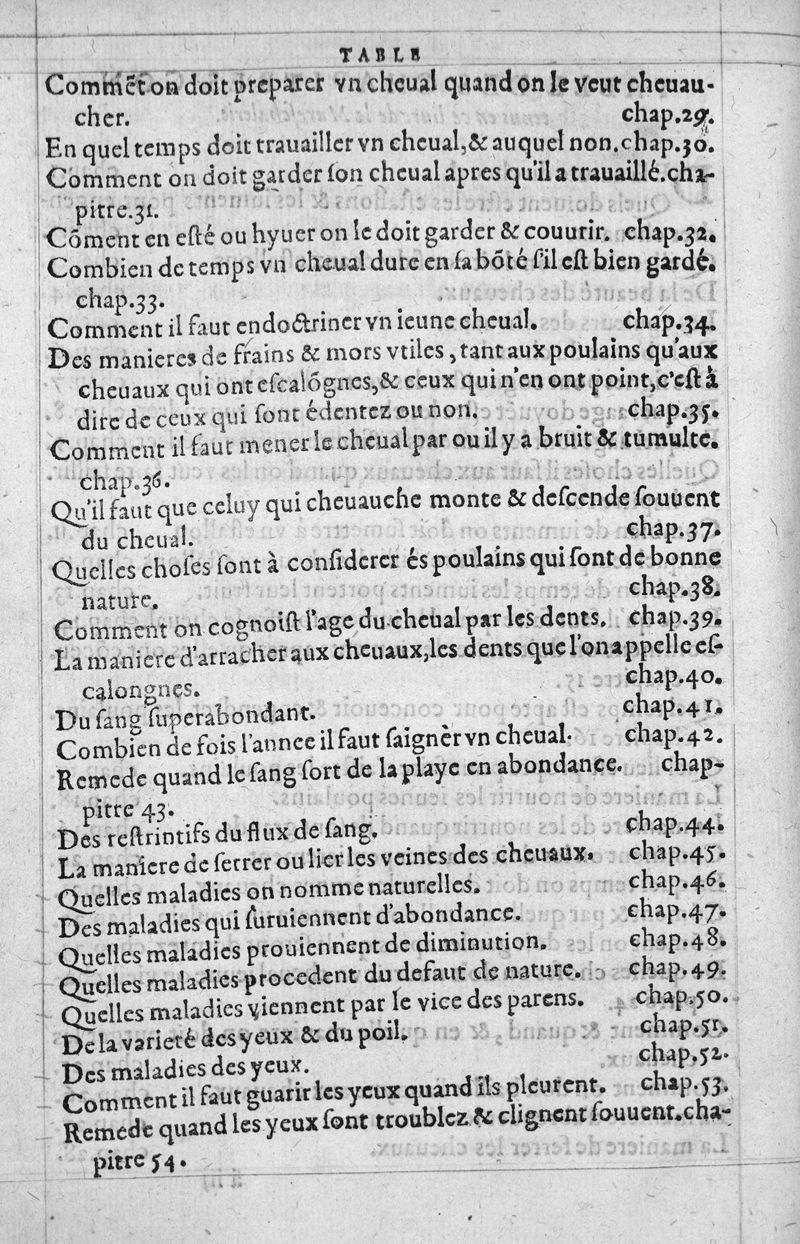 TABLE
Commẽt on doit preparer vn cheual quand on le veut cheuau-
cher. chap.29.
En quel temps doit trauailler vn cheual,& auquel non.chap.30.
Comment on doit garder ſon cheual apres qu'il a trauaillé.cha-
pitre.31.
Cõment en eſté ou hyuer on le doit garder & couurir. chap.32.
Combien de temps vn cheual dure en ſa bõté ſ'il eſt bien gardé.
chap.33.
Comment il faut endoctriner vn ieune cheual. chap.34.
Des manieres de frains & mors vtiles, tant aux poulains qu'aux
cheuaux qui ont eſcalõgnes,& ceux qui n'en ont point,c'eſt à
dire de ceux qui ſont édentez ou non. chap.35.
Comment il faut mener le cheual par ou il y a bruit & tumulte.
chap.36.
Qu'il faut que celuy qui cheuauche monte & deſcende ſouuent
du cheual. chap.37.
Quelles choſes ſont à conſiderer és poulains qui ſont de bonne
nature. chap.38.
Comment on cognoiſt l'age du cheual par les dents. chap.39.
La maniere d'arracher aux cheuaux,les dents que l'on appelle eſ-
calongnes. chap.40.
Du ſang ſuperabondant. chap.41.
Combien de fois l'annee il faut ſaigner vn cheual. chap.42.
Remede quand le ſang ſort de la playe en abondance. chap-
pitre 43.
Des reſtrintifs du flux de ſang. chap.44.
La maniere de ſerrer ou lier les veines des cheuaux. chap.45.
Quelles maladies on nomme naturelles. chap.46.
Des maladies qui ſuruiennent d'abondance. chap.47.
Quelles maladies prouiennent de diminution. chap.48.
Quelles maladies procedent du defaut de nature. chap.49.
Quelles maladies viennent par le vice des parens. chap.50.
De la varieté des yeux & du poil. chap.51.
Des maladies des yeux. chap.52.
Comment il faut guarir les yeux quand ils pleurent. chap.53.
Remede quand les yeux ſont troublez & clignent ſouuent.cha-
pitre 54.